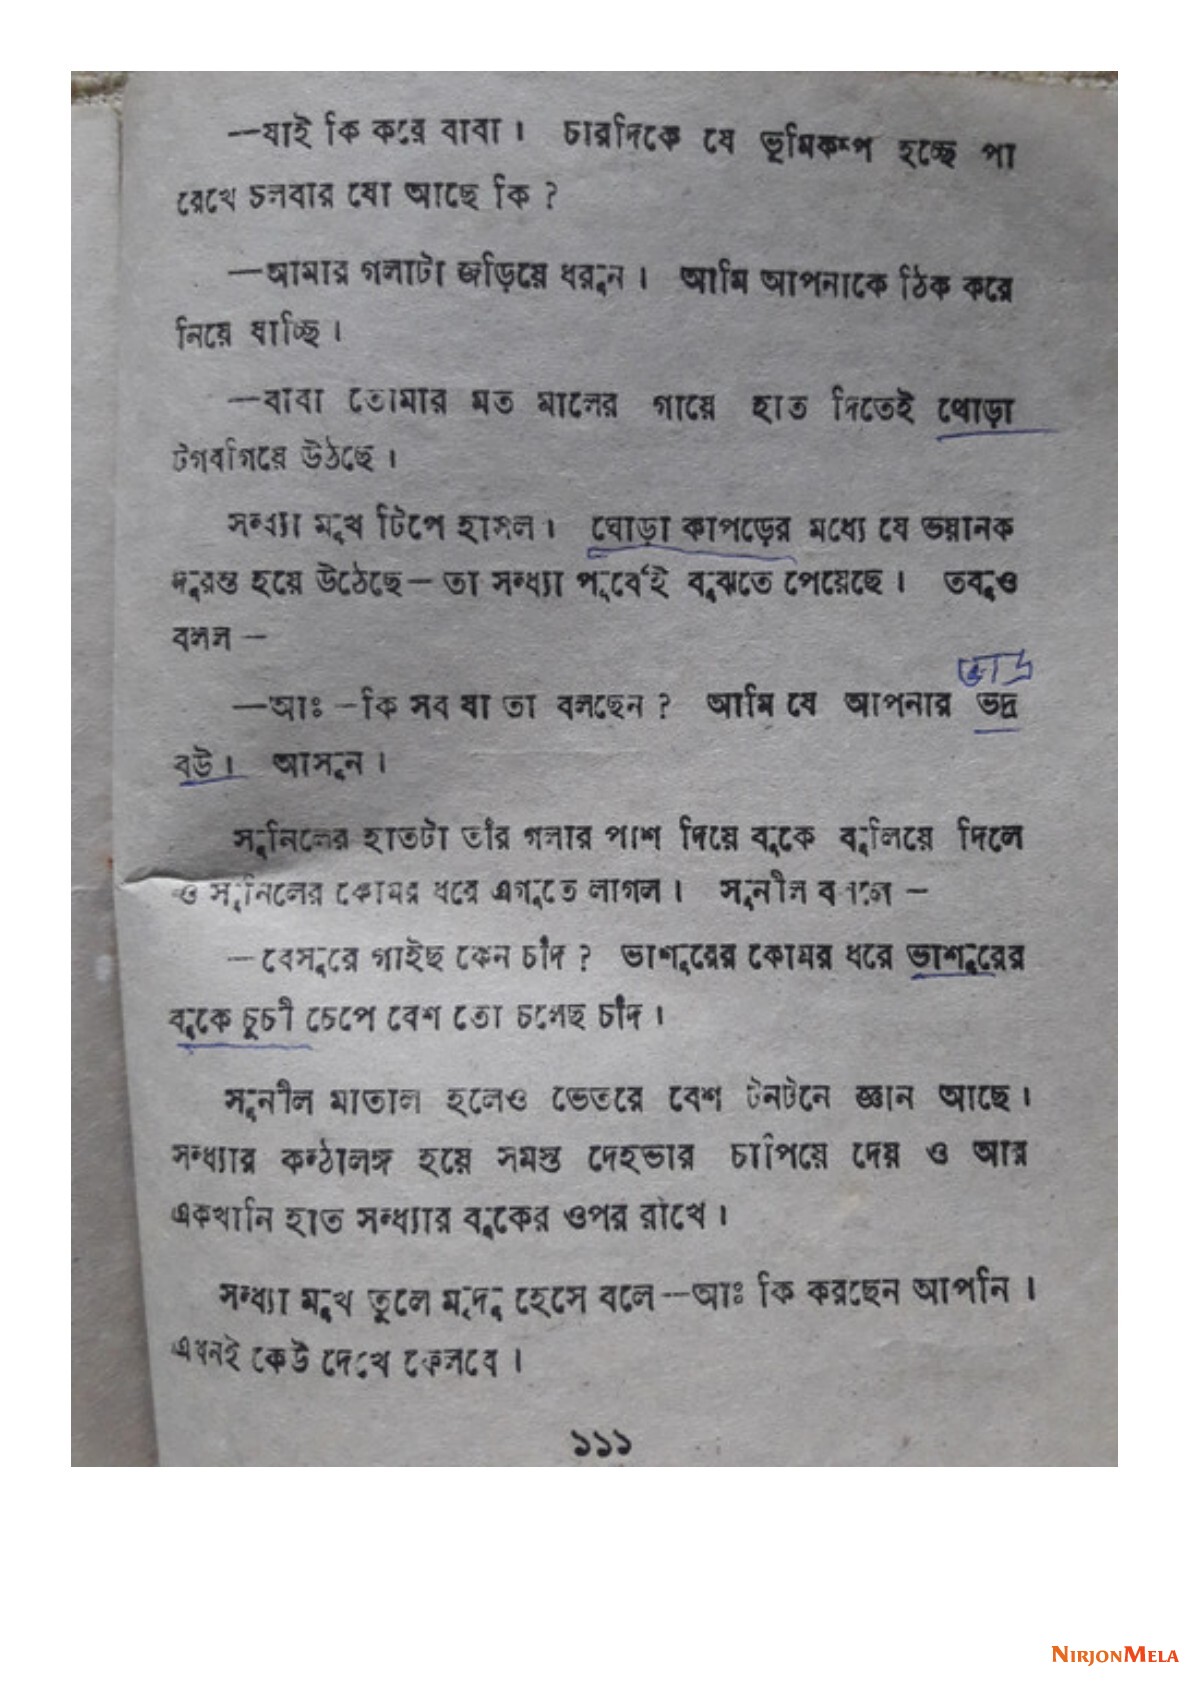 —যাই কি করে বাবা। চারদিকে যে ভূমিকম্প হচ্ছে পা
রেখে চলবার যো আছে কি ?
—আমার গলাটা জড়িয়ে ধরুন। আমি আপনাকে ঠিক করে
নিয়ে যাচ্ছি।
—বাবা তোমার মত মালের গায়ে হাত দিতেই ঘোড়া
টগবগিয়ে উঠছে।
সন্ধ্যা মুখ টিপে হাসল। ঘোড়া কাপড়ের মধ্যে যে ভয়ানক
দুরন্ত হয়ে উঠেছে— তা সন্ধ্যা পূর্বেই বুঝতে পেয়েছে। তবুও
বলল —
ভাদ্র
—আঃ –কি সব যা তা বলছেন ? আমি যে আপনার ভদ্র
বউ। আসুন।
সুনিলের হাতটা তাঁর গলার পাশ দিয়ে বুকে বুলিয়ে দিলে
ও সুনিলের কোমর ধরে এগুতে লাগল। সুনীল বলে —
—বেসুরে গাইছ কেন চাঁদ ? ভাশুরের কোমর ধরে ভাশুরের
বুকে চুচী চেপে বেশ তো চলেছ চাঁদ।
সুনীল মাতাল হলেও ভেতরে বেশ টনটনে জ্ঞান আছে।
সন্ধ্যার কন্ঠালঙ্গ হয়ে সমস্ত দেহভার চাপিয়ে দেয় ও আর
একখানি হাত সন্ধ্যার বুকের ওপর রাখে।
সন্ধ্যা মুখ তুলে মৃদু হেসে বলে—আঃ কি করছেন আপনি।
এখনই কেউ দেখে ফেলবে।
১১১
NIRJONMELA